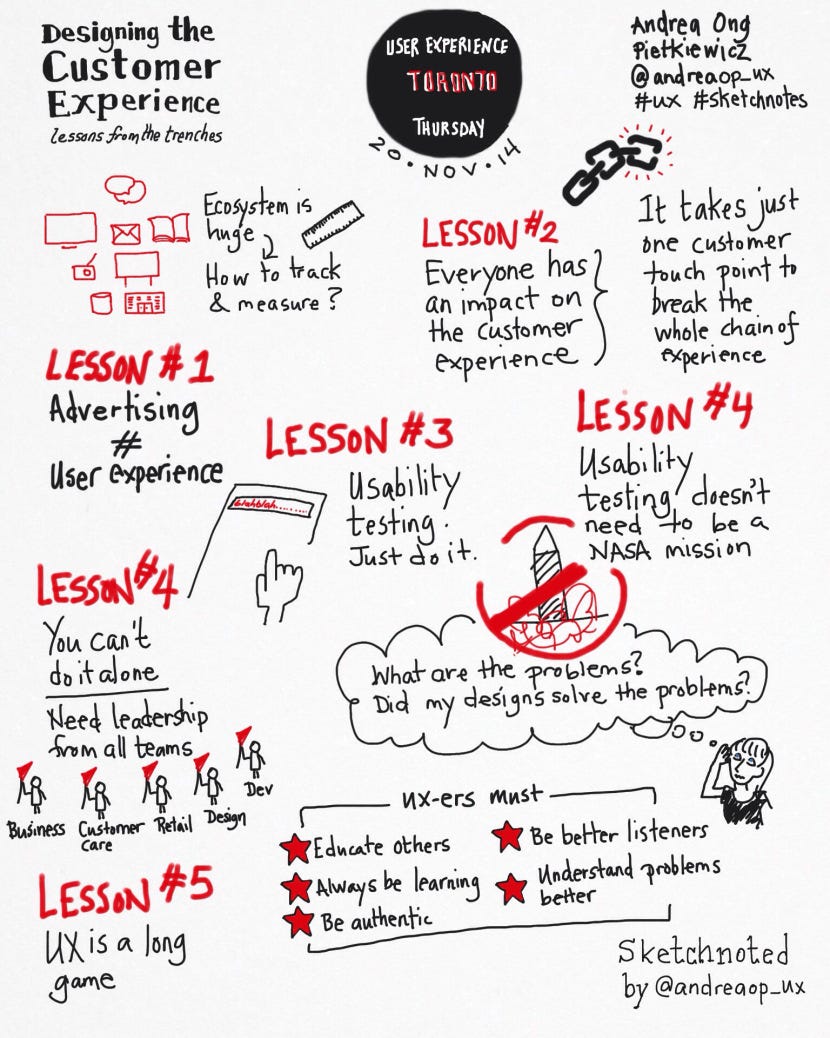 Designing the
Customer
Experience
lessons from the trenches
USER EXPERIENCE
TORONTO
THURSDAY
20.NOV.14
Andrea Ong
Pietkiewicz
@andreaop_ux
#ux #sketchnotes
Ecosystem is
huge
How to track
& measure?
LESSON #1
Advertising
≠
User experience
LESSON #2
Everyone has
an impact on
the customer
experience
It takes just
one customer
touch point to
break the
whole chain of
experience
LESSON #3
Usability
testing.
Just do it.
blahblah........
LESSON #4
Usability
testing doesn't
need to be a
NASA mission
What are the problems?
Did my designs solve the problems?
LESSON #4
You can't
do it alone
Need leadership
from all teams
Business
Customer
care
Retail
Design
Dev
LESSON #5
UX is a long
game
UX-ers must
Educate others
Always be learning
Be authentic
Be better listeners
Understand problems
better
Sketchnoted
by @andreaop_ux